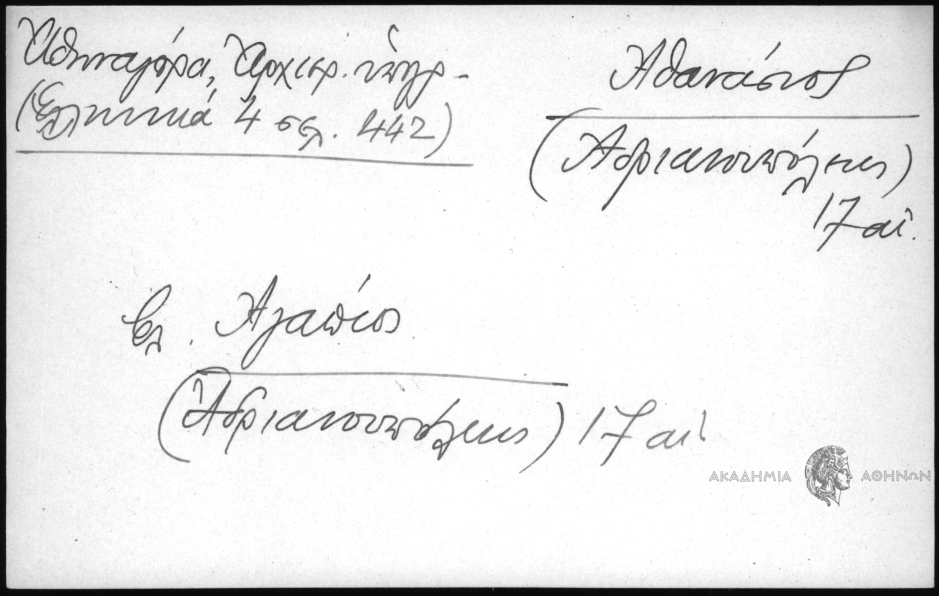 Ἀθηναγόρα, Ἀρχιερ. ὑπογρ.
(Ἑλληνικά 4 σελ. 442)
Ἀθανάσιος
(Ἀδριανουπόλεως)
17 αἰ.
βλ. Ἀγαπίος
(Ἀδριανουπόλεως) 17 αἰ.
ΑΚΑΔΗΜΙΑ ΑΘΗΝΩΝ